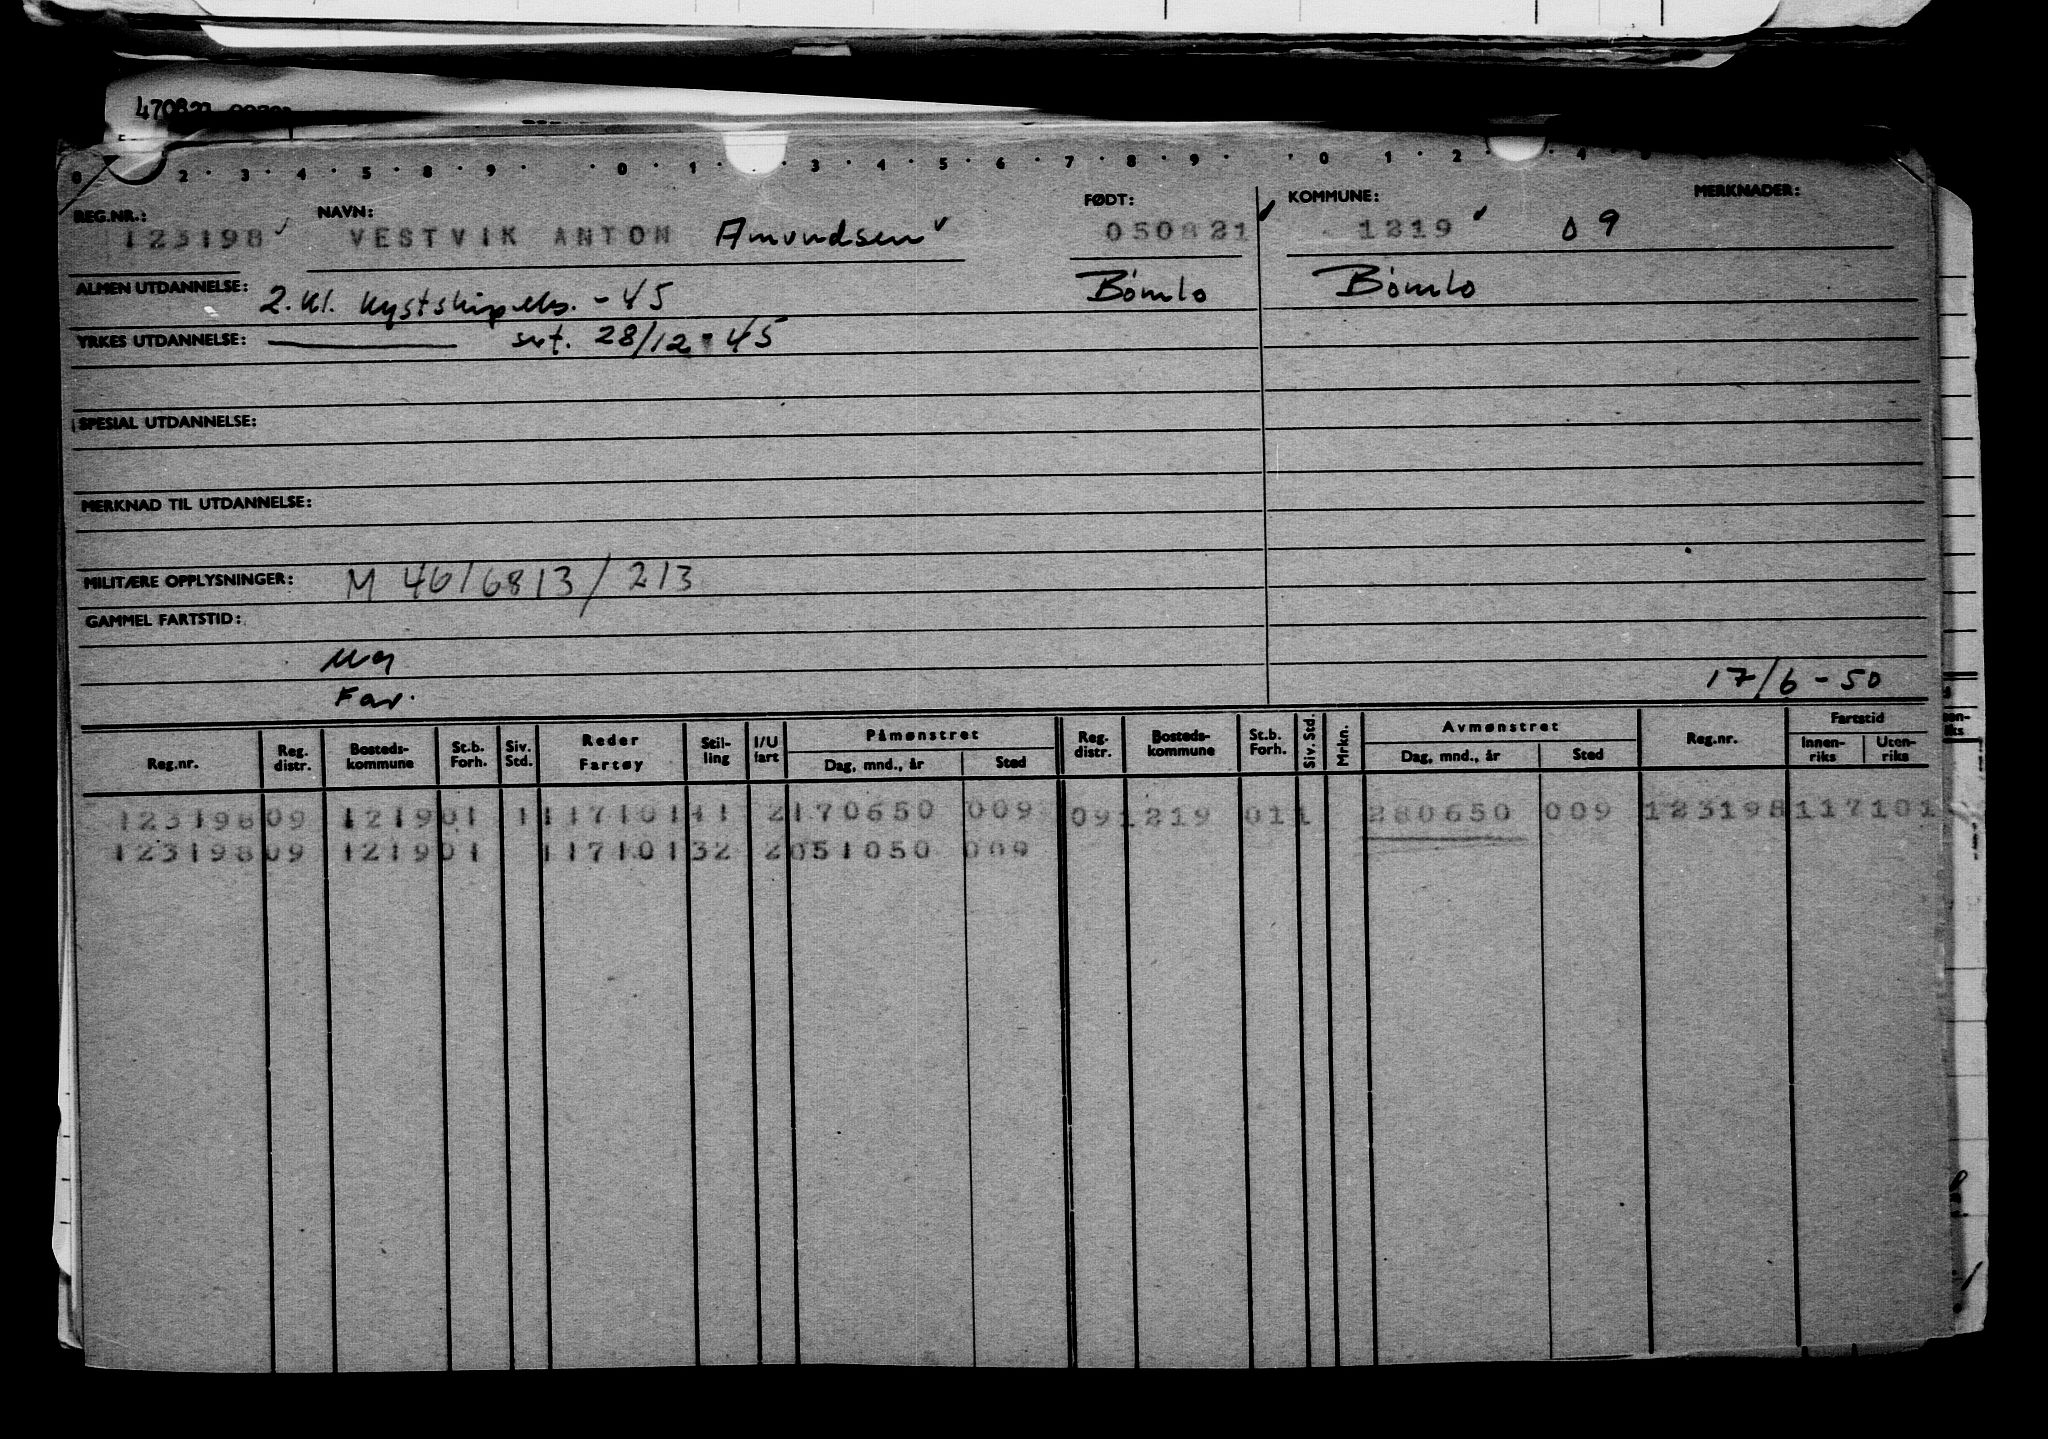 470822
0 2 3 4 5 8 9 0 1 3 4 5 6 7 8 9 0 1 2 4
REG.NR.: NAVN: FØDT: KOMMUNE: MERKNADER:
123198 VESTVIK ANTON Amundsen 050821 1219 09
ALMEN UTDANNELSE: 2. kl. -45 Bömlo Bömlo
YRKES UTDANNELSE: sert. 28/12-45
SPESIAL UTDANNELSE:
MERKNAD TIL UTDANNELSE:
MILITÆRE OPPLYSNINGER: M 46/6813/213
GAMMEL FARTSTID:
Far. 17/6-50
Reg.nr. Reg. distr. Bosteds-kommune St.b. Forh. Siv. Std. Reder Fartøy Stil-ling I/U fart Påmønstret Dag, mnd., år Sted Reg. distr. Bosteds-kommune St.b. Forh. Siv. Std. Mrkn. Avmønstret Dag, mnd., år Sted Reg.nr. Fartstid Innen-riks Uten-riks
123198 09 1219 01 1 117101 41 2 170650 009 09 1219 01 1 280650 009 123198 117101
123198 09 1219 01 117101 32 2 051050 009